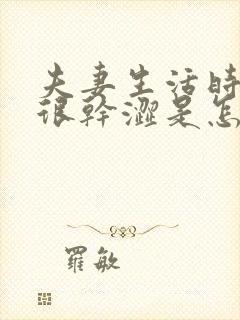 夫妻生活時
很幹澀是怎
羅敏